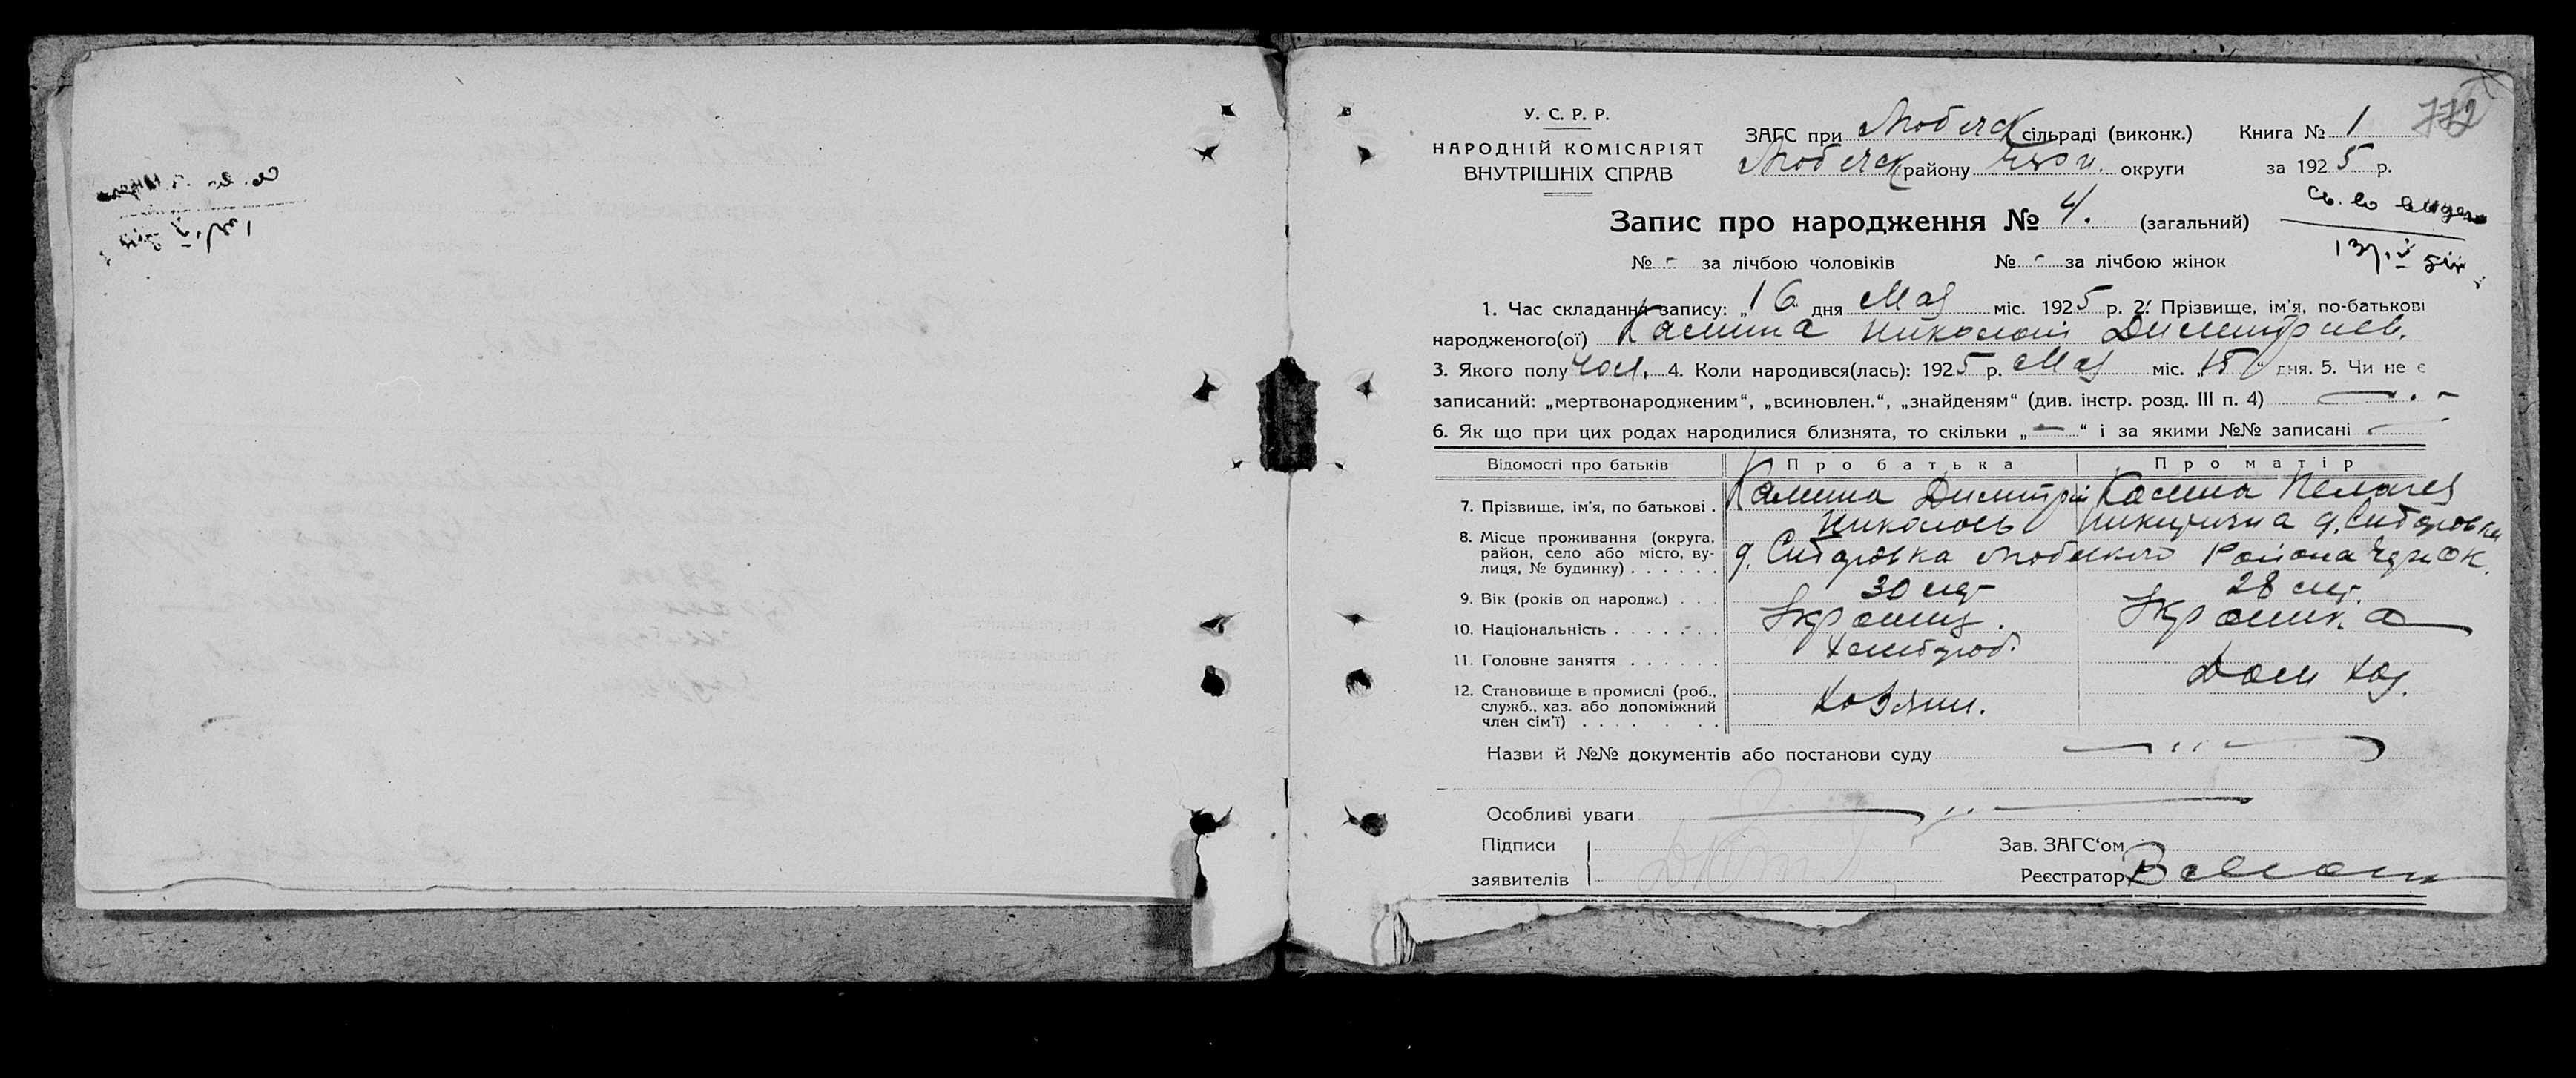 772
У. С. Р. Р.
НАРОДНІЙ КОМІСАРІЯТ
ВНУТРІШНІХ СПРАВ
ЗАГС при Любечск сільраді (виконк.) Книга № 1
Любечск району Черн. округи за 1925 р.
Запис про народження № 4. (загальний)
№ - за лічбою чоловіків № - за лічбою жінок
1. Час складання запису: „16 дня Мая міс. 1925 р. 2. Прізвище, ім'я, по-батькові
народженого(ої) Николай Димитриев.
3. Якого полу чол. 4. Коли народився(лась): 1925 р. Мая міс. „15" дня. 5. Чи не є
записаний: „мертвонародженим“, „всиновлен.“, „знайденям“ (див. інстр. розд. III п. 4)
6. Як що при цих родах народилися близнята, то скільки „—“ і за якими №№ записані
Відомості про батьків Про батька Про матір
7. Прізвище, ім'я, по батькові . Димитрий Пелагея
Николаев Никитична
8. Місце проживання (округа, район, село або місто, вулиця, № будинку) . . . . . . д. Любечского Района Черн ок.
9. Вік (років од народж.) . . . 30 лет 28 лет.
10. Національність . . . . . . . Украинец. Украинка
11. Головне заняття . . . . . . Хлебороб. Дом хоз.
12. Становище в промислі (роб., служб., хаз. або допоміжний член сім'ї) . . . . . . . Хозяин.
Назви й №№ документів або постанови суду
Особливі уваги
Підписи
заявителів
Зав. ЗАГС‘ом
Реєстратор